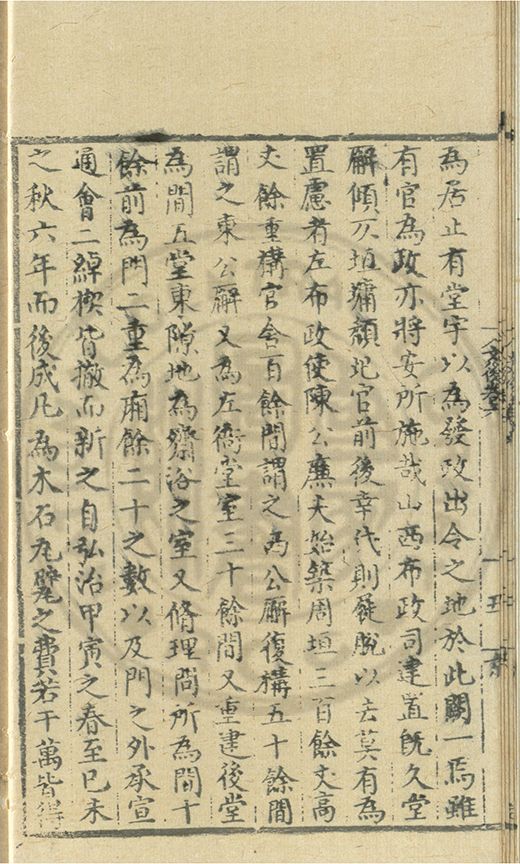 為居止有堂宇以為發政出令之地於此闕一焉雖
有官為政亦將安所施哉山西布政司建置既久堂
廨傾仄垣墉頹圮官前後幸代則屣脫以去莫有為
置慮者左布政使陳公廉夫始築周垣三百餘丈高
丈餘重搆官舍百餘間謂之西公廨復構五十餘間
謂之東公廨又為左衙堂室三十餘間又重建後堂
為間五堂東隙地為齋浴之室又脩理問所為間十
餘前為門二重為廂餘二十之數以及門之外承宣
通會二綽楔皆撤而新之自弘治甲寅之春至己未
之秋六年而後成凡為木石瓦甓之費若干萬皆得